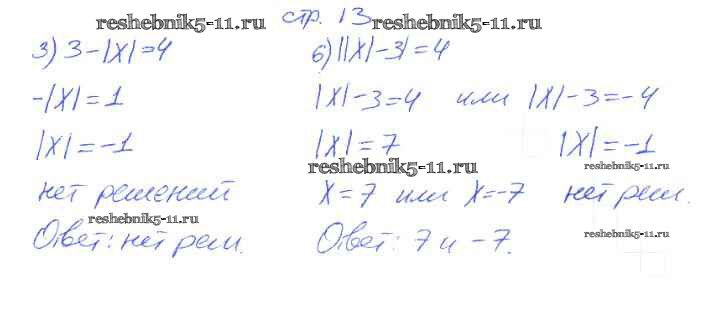 reshebnik5-11.ru стр. 13 reshebnik5-11.ru
3) 3-|x|=4
-|x|=1
|x|=-1
нет решений
reshebnik5-11.ru
Ответ: нет реш.
6) ||x|-3|=4
|x|-3=4 или |x|-3=-4
|x|=7 |x|=-1
reshebnik5-11.ru reshebnik5-11.ru
x=7 или x=-7 нет реш.
Ответ: 7 и -7.
reshebnik5-11.ru